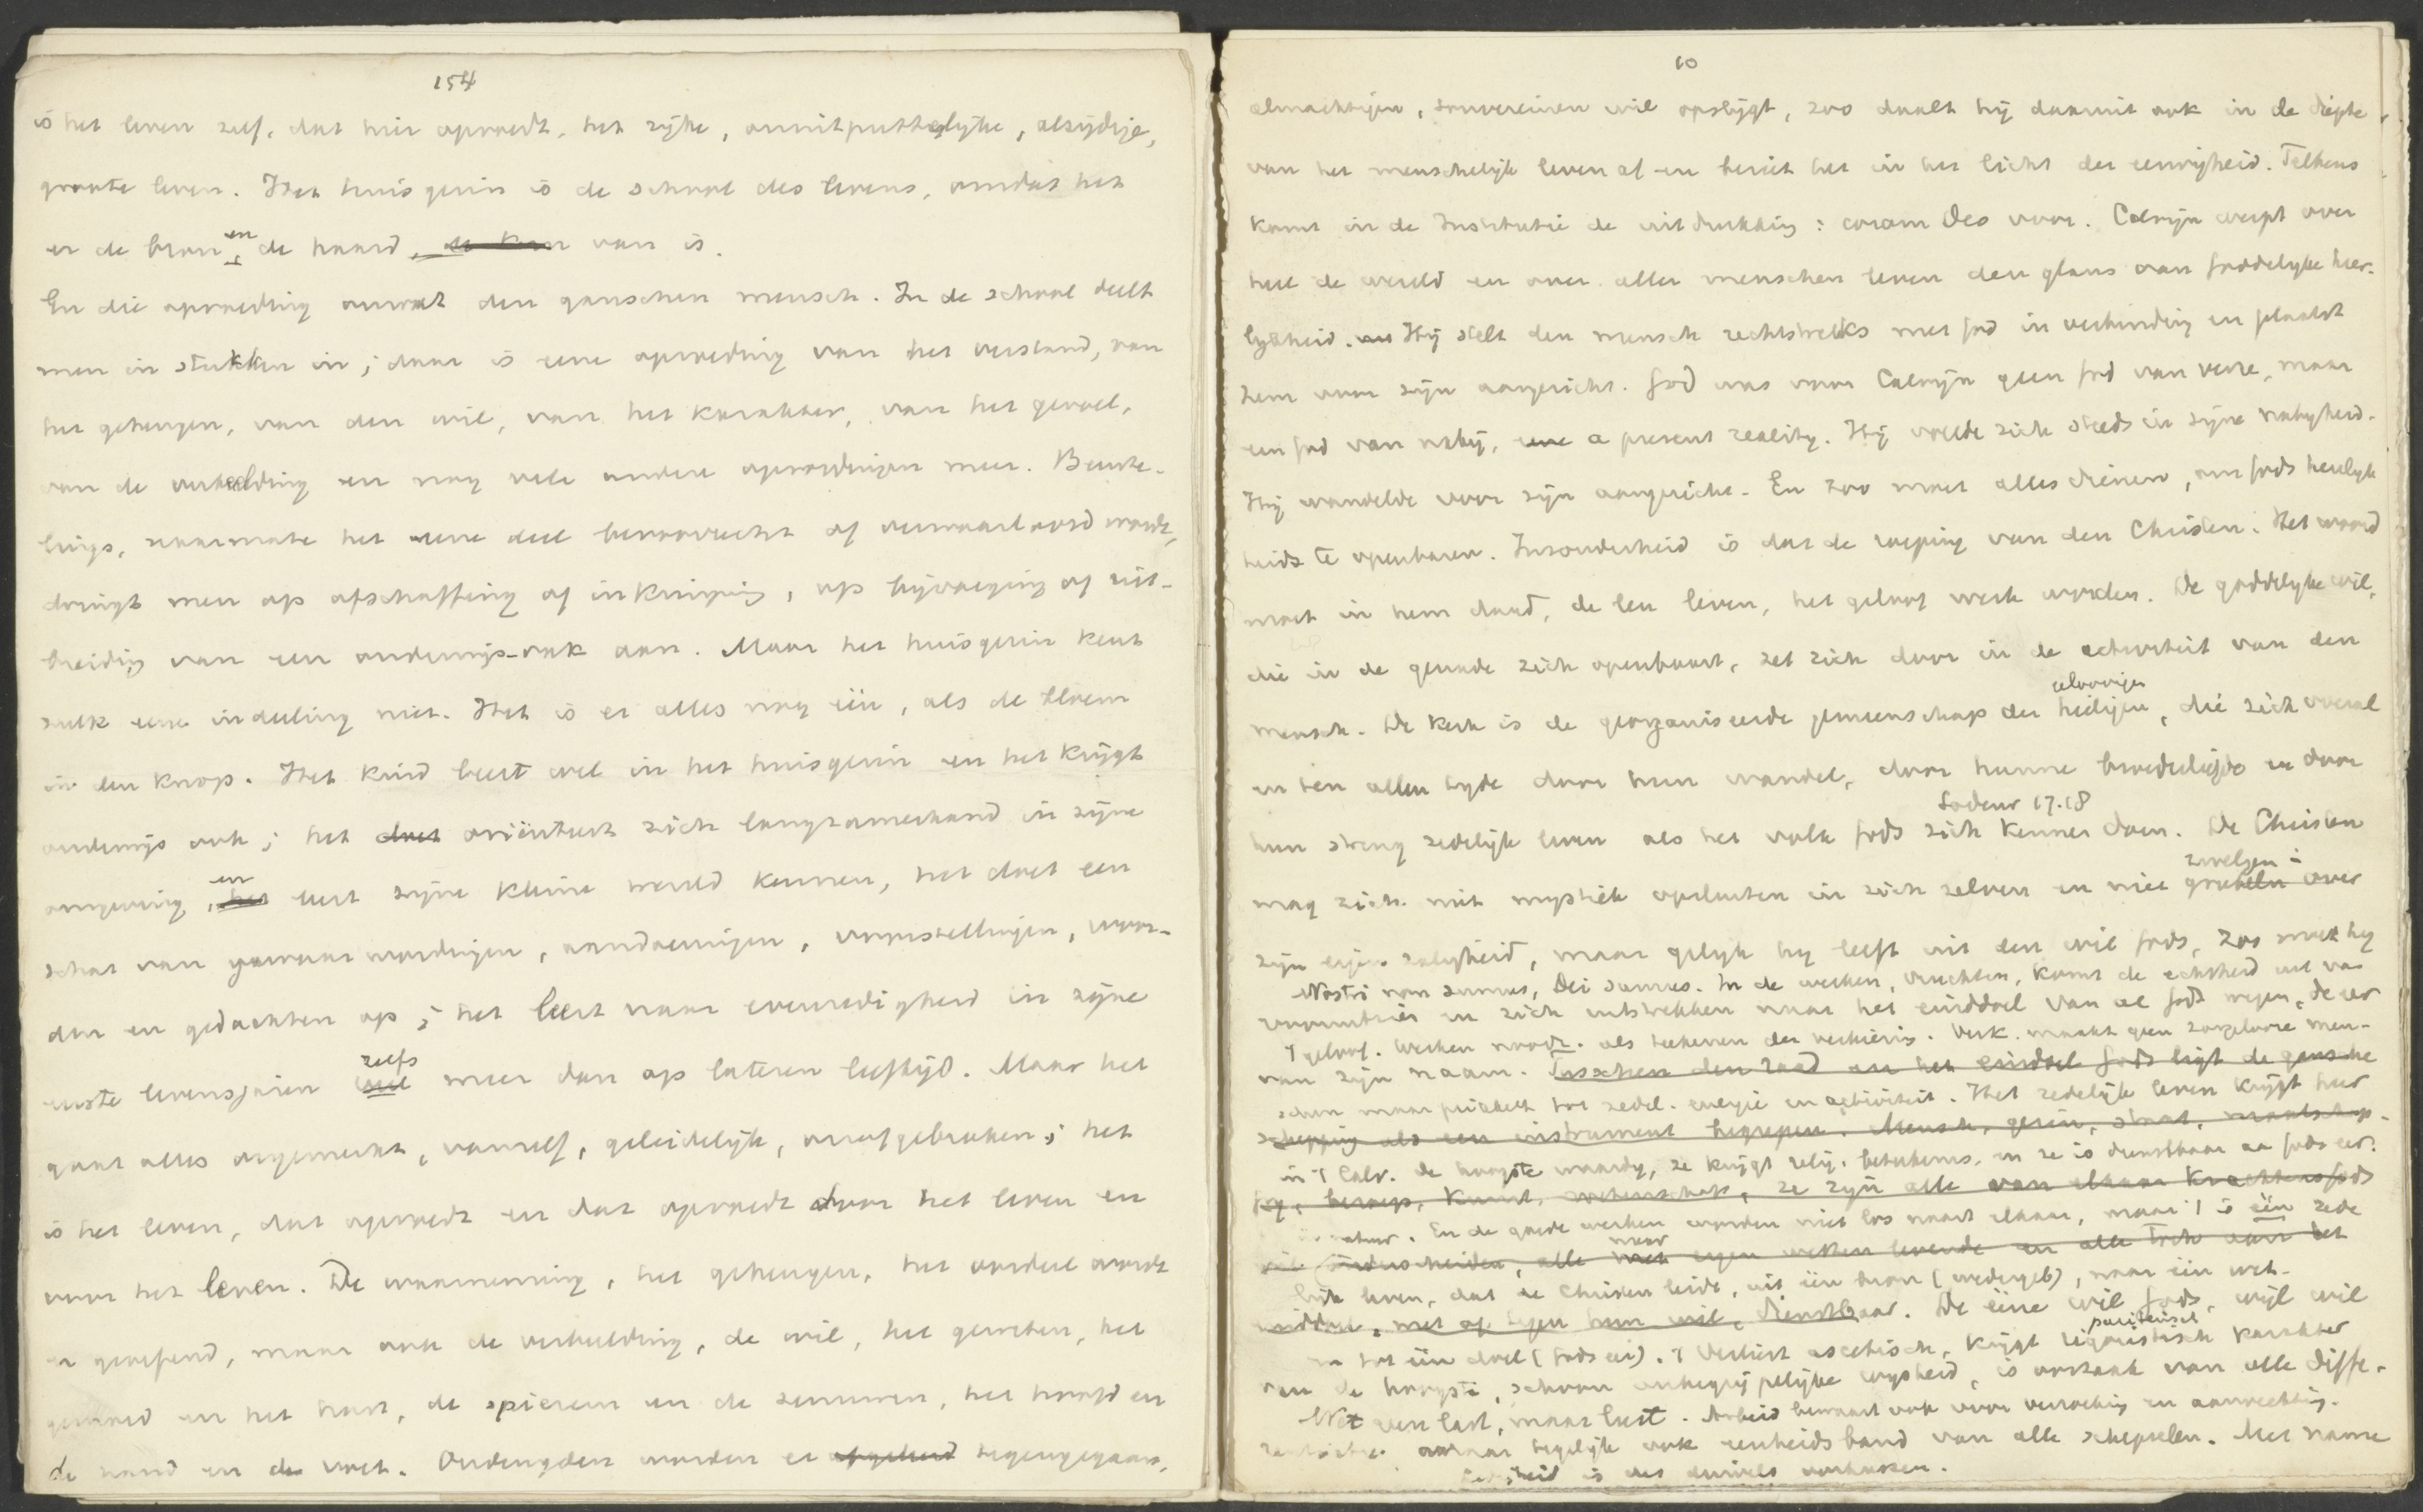 154
is het leven zelf, dat hier opvoedt, het rijke, onuitputtelijke, alzijdige,
groote leven. Het huisgezin is de school des levens, omdat het
er de bron en de haard, de kern van is.
En die opvoeding omvat den ganschen mensch. In de school deelt
men in stukken in; daar is eene opvoeding van het verstand, van
het geheugen, van den wil, van het karakter, van het gevoel,
van de verbeelding en nog vele andere opvoedingen meer. Beurte-
lings, naarmate het eene deel bevoorrecht of verwaarloosd wordt,
dringt men op afschaffing of inkrimping, op bijvoeging of uit-
breiding van een onderwijs-vak aan. Maar het huisgezin kent
zulk eene indeeling niet. Het is er alles nog één, als de bloem
in den knop. Het kind leert wel in het huisgezin en het krijgt
onderwijs ook; het doet oriënteert zich langzamerhand in zijne
omgeving, het en leert zijne kleine wereld kennen, het doet een
schat van gewaarwordingen, aandoeningen, voorstellingen, woor-
den en gedachten op; het leert naar evenredigheid in zijne
eerste levensjaren veel zelfs meer dan op lateren leeftijd. Maar het
gaat alles ongemerkt, vanzelf, geleidelijk, onafgebroken; het
is het leven, dat opvoedt en dat opvoedt door het leven en
voor het leven. De waarneming, het geheugen, het oordeel wordt
er geoefend, maar ook de verbeelding, de wil, het geweten, het
gemoed en het hart, de spieren en de zenuwen, het hoofd en
de hand en de voet. Ondeugden worden er afgeleerd tegengegaan,
10
almachtigen, souvereinen wil opstijgt, zoo daalt hij daaruit ook in de diepte
van het menschelijk leven af en beziet het in het licht der eeuwigheid. Telkens
komt in de Institutie de uitdrukking: coram Deo voor. Calvijn werpt over
heel de wereld en over aller menschen leven den glans van goddelijke heer-
lijkheid. Hij stelt den mensch rechtstreeks met God in verbinding en plaatst
hem voor zijn aangezicht. God was voor Calvijn geen God van verre, maar
een God van nabij, eene a present reality. Hij voelde zich steeds in zijne nabijheid.
Hij wandelde voor zijn aangezicht. En zoo moet alles dienen, om Gods heerlijk
heid te openbaren. Inzonderheid is dat de roeping van den Christen. Het woord
moet in hem daad, de leer leven, het geloof werk worden. De goddelijke wil,
die in de genade zich openbaart, zet zich door in de activiteit van den
mensch. De Kerk is de georganiseerde gemeenschap der heiligen geloovigen, die zich overal
en ten allen tyde door hun wandel, door hunne broederliefde en door
hun streng zedelijk leven als het volk Gods zich kennen doen. De Christen
Lodenst. 17.18
mag zich niet mystiek opsluiten in zich zelven en niet grübeln over zwelgen in
zijn eigen zaligheid, maar gelijk hij leeft uit den wil Gods, zoo moet hij
Nostri non sumus, Dei sumus. In de werken, vruchten, komt de echtheid uit van
vooruitzien en zich uitstrekken naar het einddoel van al Gods wegen, de eer
't geloof. Werken noodz. als teekenen der verkiezing. Verk. maakt geen zorgelooze men-
van zijn naam. Tusschen den raad en het einddoel Gods ligt de gansche
schen maar prikkelt tot zedel. energie en activiteit. Het zedelijk leven krijgt hier
schepping als een instrument begrepen. Mensch, gezin, staat, maatschap-
in 't Calv. de hoogste waardij, ze krijgt relig. beteekenis, en ze is dienstbaar aan Gods eer.
pij, beroep, kunst, wetenschap, ze zijn alle van elkaar krachtens Gods
En de goede werken worden niet los naast elkaar, maar 't is één zede
wil onderscheiden, alle met naar eigen wetten levende en alle toch aan het
lijk leven, dat de Christen leidt, uit één bron (wedergeb), naar één wet
einddoel, met of tegen hun wil, dienstbaar. De eene wil Gods, wijl wil
en tot één doel (Gods eer). 't Verliest ascetisch, krijgt rigoristisch puriteinsch karakter
van de hoogste, schoon onbegrijpelijke wijsheid, is oorzaak van alle diffe-
Wet geen last, maar lust. Arbeid bewaart ook voor verzoeking en aanvechting.
rentie, maar tegelijk ook eenheidsband van alle schepselen. Met name
Ledigheid is des duivels oorkussen.